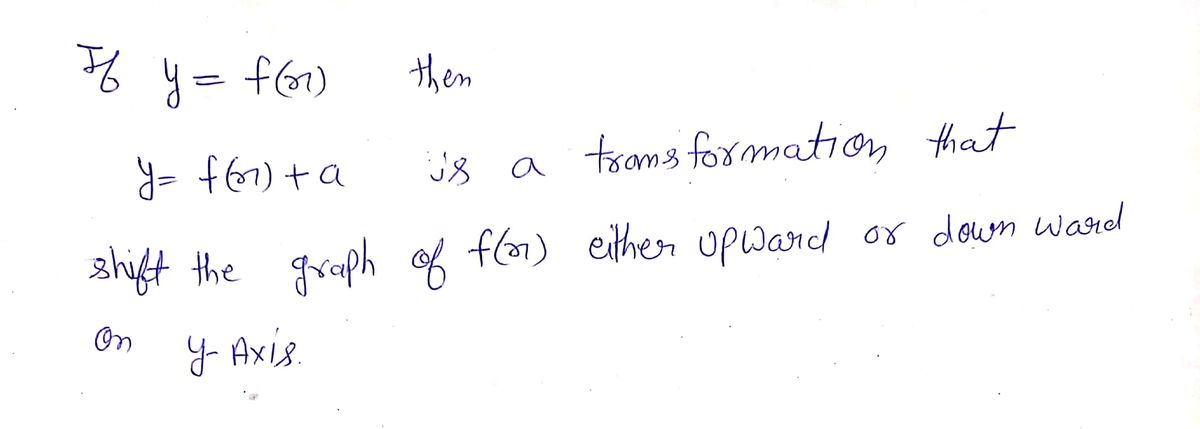 If y = f(x) then
y = f(x) + a is a transformation that
shift the graph of f(x) either upward or down ward
on y-Axis.